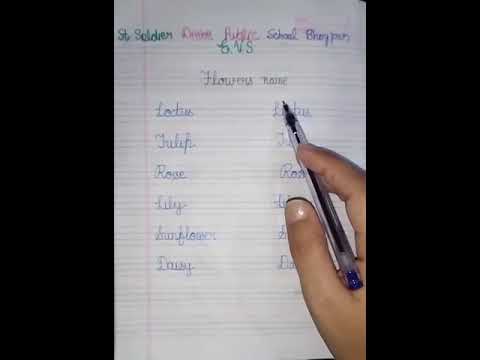 St Soldier Divine Public School Bhogpur
E.V.S
Flowers name
Lotus Lotus
Tulip
Rose Rose
Lily
Sunflower
Daisy